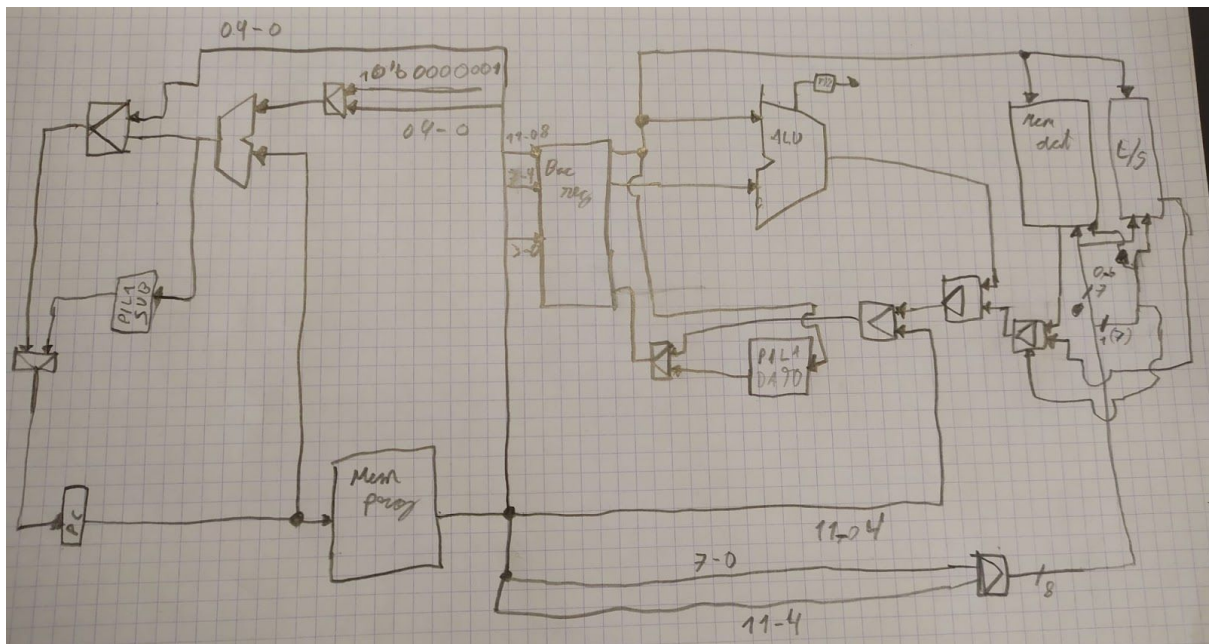 04-0
10'b0000001
04-0
11-08
7-4
3-0
Banc
reg
ALU
Mem
dat
E/S
PILA
SUB
7
1(7)
PILA
DATO
PC
Mem
prog
11-04
7-0
8
11-4